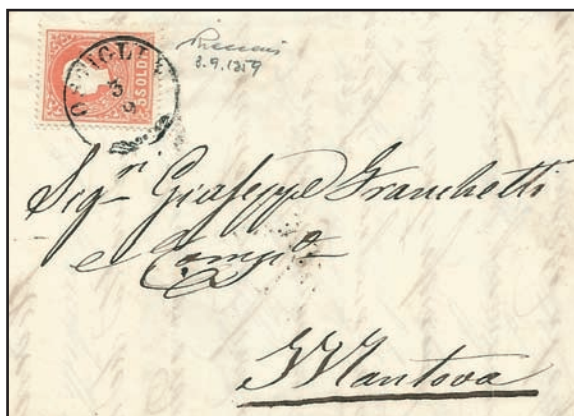 5 SOLDI
OSTIGLIA
3
9
3.9.1859
Sigri Giuseppe Franchetti
e Compo
Mantova